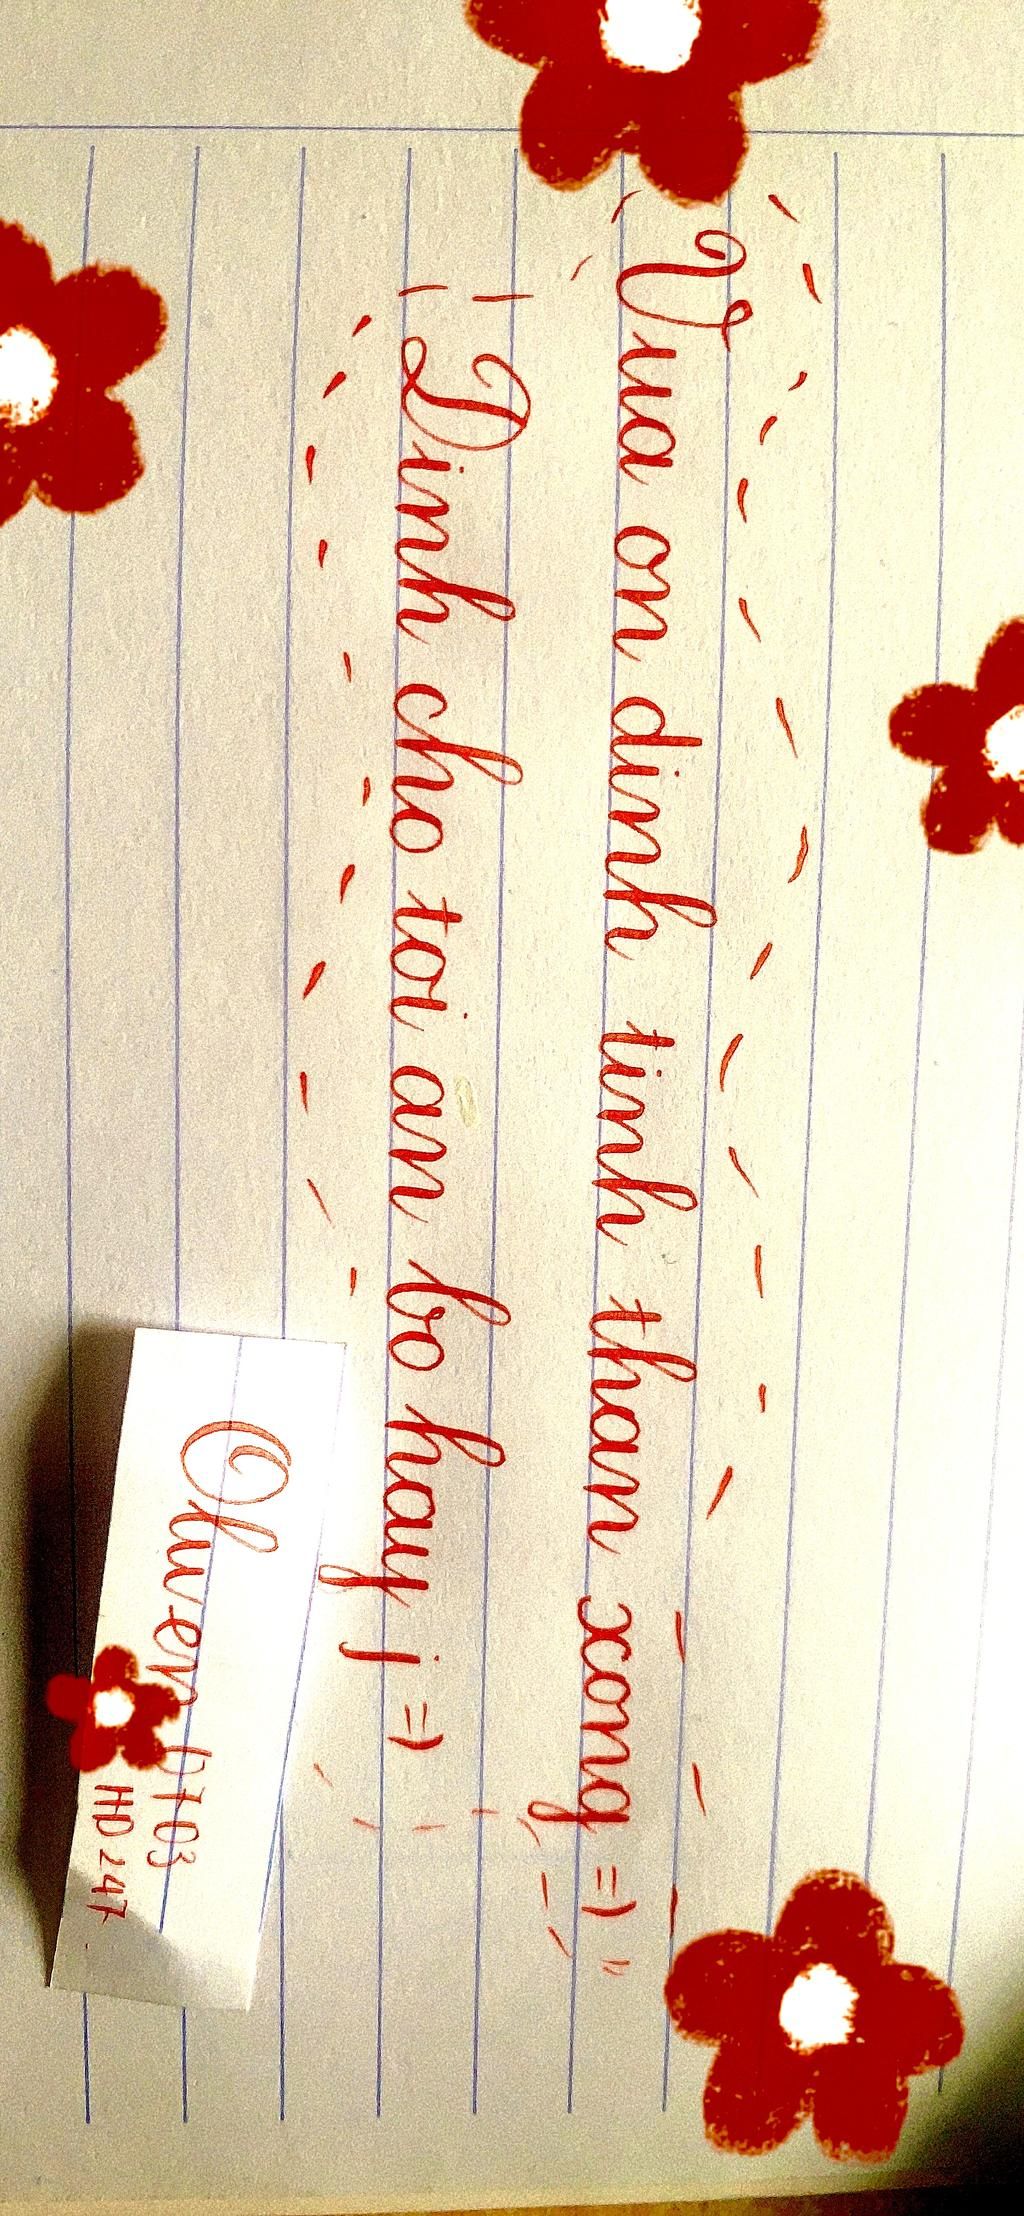 Vua on dinh tinh than xong =)"
Dinh cho toi an bo hay j =)
Olwen 0703
HD 247